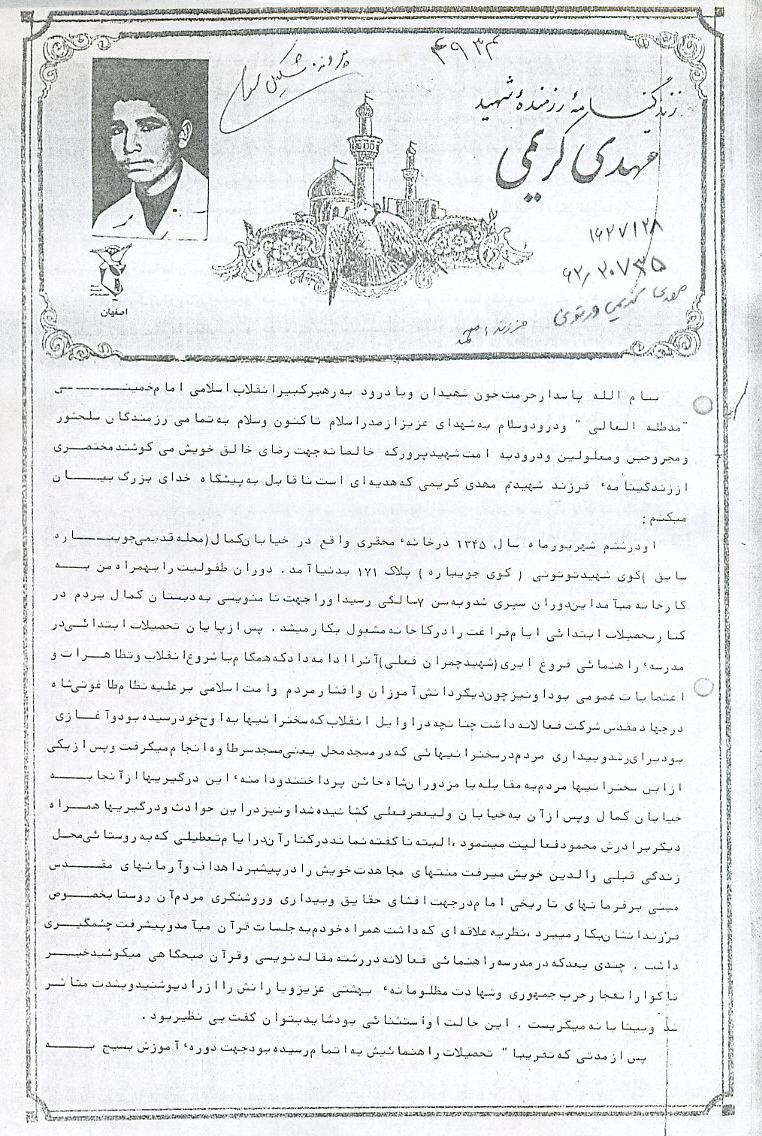 ۴۹۳۴
زندگینامهٔ رزمندهٔ شهید
مهدی کریمی
۱۶۲۷۱۲۸
۶۲/۲۰۷۳۵
مهدی کریمی
فرزند
اصفهان
بنام الله پاسدارحرمت خون شهیدان وبا درود به رهبرکبیرانقلاب اسلامی امام خمینی
"مدظله العالی" ودرودوسلام به شهدای عزیزازصدراسلام تاکنون وسلام به تمامی رزمندگان سلحشور
ومجروحین ومعلولین ودرودبه امت شهیدپرورکه خالصانه جهت رضای خالق خویش می کوشندمختصری
اززندگینامه‌ء فرزند شهیدم مهدی کریمی که هدیه‌ای است ناقابل به پیشگاه خدای بزرگ بیان
میکنم :
اودرششم شهریورماه سال ۱۳۴۵ درخانه‌ء محقری واقع در خیابان کمال(محله قدیمی جویباره
سابق )کوی شهیدتوتونی ( کوی جویباره ) پلاک ۱۷۱ بدنیا آمد . دوران طفولیت رابهمراه من به
کارخانه میآمداین دوران سپری شدوبه سن ۷سالگی رسیداوراجهت نامنویسی به دبستان کمال بردم در
کنارتحصیلات ابتدائی ایام فراغت رادرکارخانه مشغول بکارمیشد . پس ازپایان تحصیلات ابتدائی در
مدرسه‌ء راهنمائی فروغ ابری(شهیدچمران فعلی)آنراادامه دادکه همگام با شروع انقلاب وتظاهرات و
اعتصابات عمومی بوداونیزچون دیگردانش آموزان واقشارمردم وامت اسلامی برعلیه نظام طاغوتی شاه
درجهادمقدس شرکت فعالانه داشت چنانچه دراوایل انقلاب که سخنرانیها به اوج خودرسیده بودوآغازی
بودبرای رشدوبیداری مردم درسخنرانیهائی که درمسجدمحل یعنی مسجدسرطاوه انجام میگرفت وپس ازیکی
ازاین سخنرانیها مردم به مقابله با مزدوران شاه خائن پرداختندودامنه‌ء این درگیریها ازآنجا به
خیابان کمال وپس ازآن به خیابان ولیعصرفعلی کشانیده شداونیزدراین حوادث ودرگیریها همراه
دیگربرادرش محمودفعالیت مینمود ،البته ناگفته نماند درکنارآن درایام تعطیلی که به روستائی محل
زندگی قبلی والدین خویش میرفت منتهای مجاهدت خویش رادرپیشبرداهداف وآرمانهای مقدس
مبنی برفرمانهای تاریخی امام درجهت افشای حقایق وبیداری وروشنگری مردم آن روستا بخصوص
فرزندانشان بکارمیبرد ،نظربه علاقه‌ای که داشت همراه خودم به جلسات قرآن میآمدوپیشرفت چشمگیری
داشت . چندی بعدکه درمدرسه راهنمائی فعالانه دررشته مقاله نویسی وقرآن صبحگاهی میکوشیدخبر
ناگوارانفجارحزب جمهوری وشهادت مظلومانه‌ء بهشتی عزیزویارانش راازرادیوشنیدوبشدت متاثر
شد وبیتابانه میگریست . این حالت اواستثنائی بودشایدبتوان گفت بی نظیربود .
پس ازمدتی که تقریبا" تحصیلات راهنمائیش به اتمام رسیده بودجهت دوره‌ء آموزش بسیج به